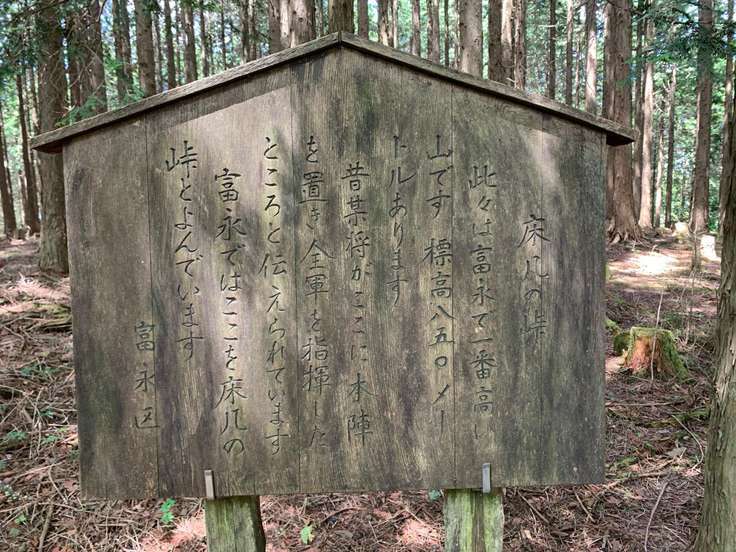 床几の峠
此々は富永で一番高い
山です 標高八五〇メー
トルあります
昔某将がここに本陣
を置き全軍を指揮した
ところと伝えられています
富永ではここを床几の
峠とよんでいます
富永区